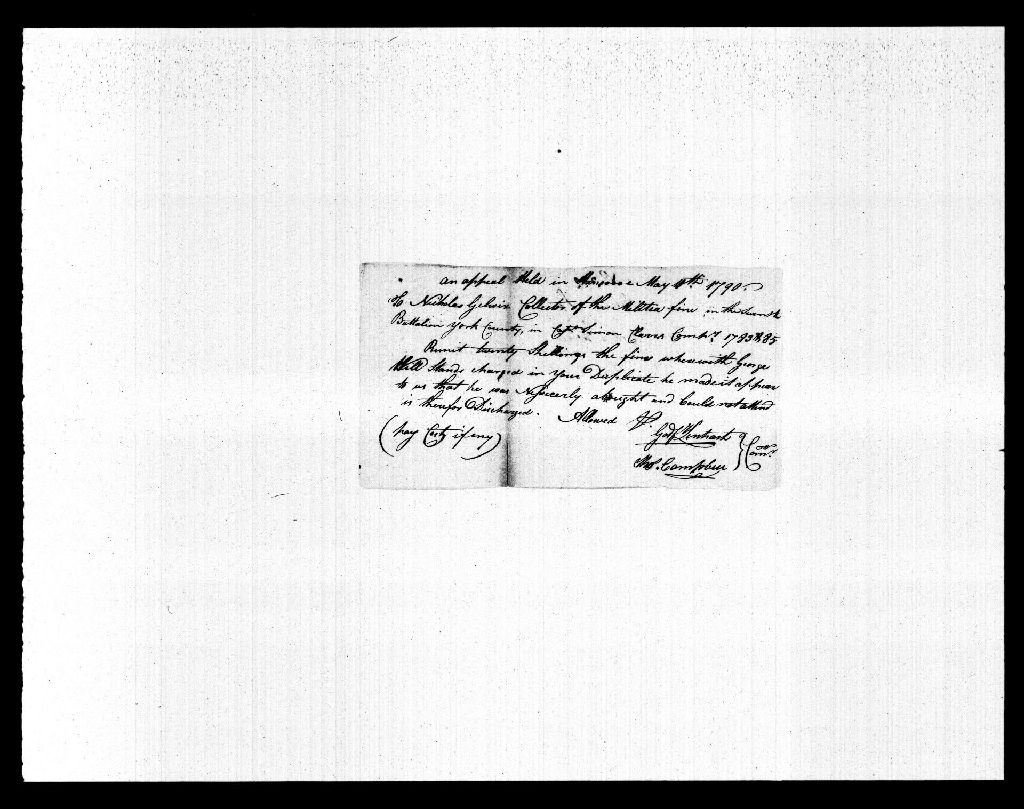 an appeal Held in May 11th 1790
To Nicholas Gelwix Collector of the Militia fine in the
Battalion York County, in Capt. Simon Compy. 1783 & 85
Remit twenty Shillings the fine wherewith George
Hall Stands charged in your Duplicate he made it appear
to us that he was and Could not attend
is therefor Discharged. Allowed
(pay Costs if any) Godf. Lenhart
Thos. Campbell } Comrs.